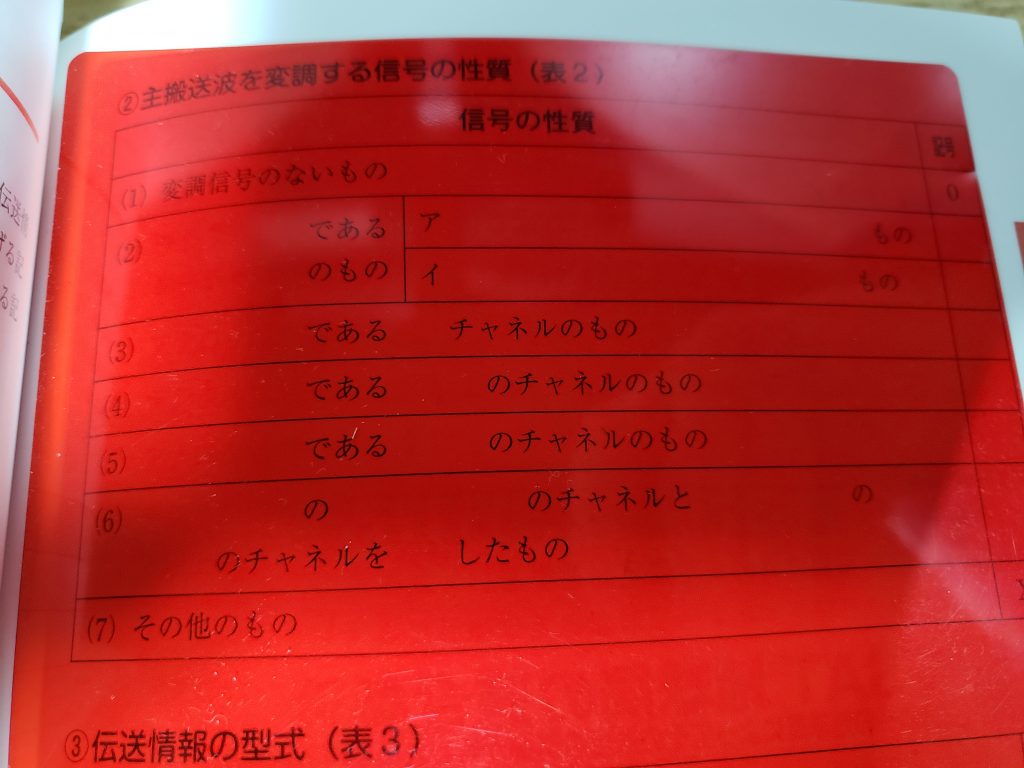 ②主搬送波を変調する信号の性質（表2）
信号の性質
記号
(1) 変調信号のないもの
0
(2)
である
のもの
ア
もの
イ
もの
(3)
である
チャネルのもの
(4)
である
のチャネルのもの
(5)
である
のチャネルのもの
(6)
の
のチャネルと
の
のチャネルを
したもの
(7) その他のもの
③伝送情報の型式（表3）
伝送
る記